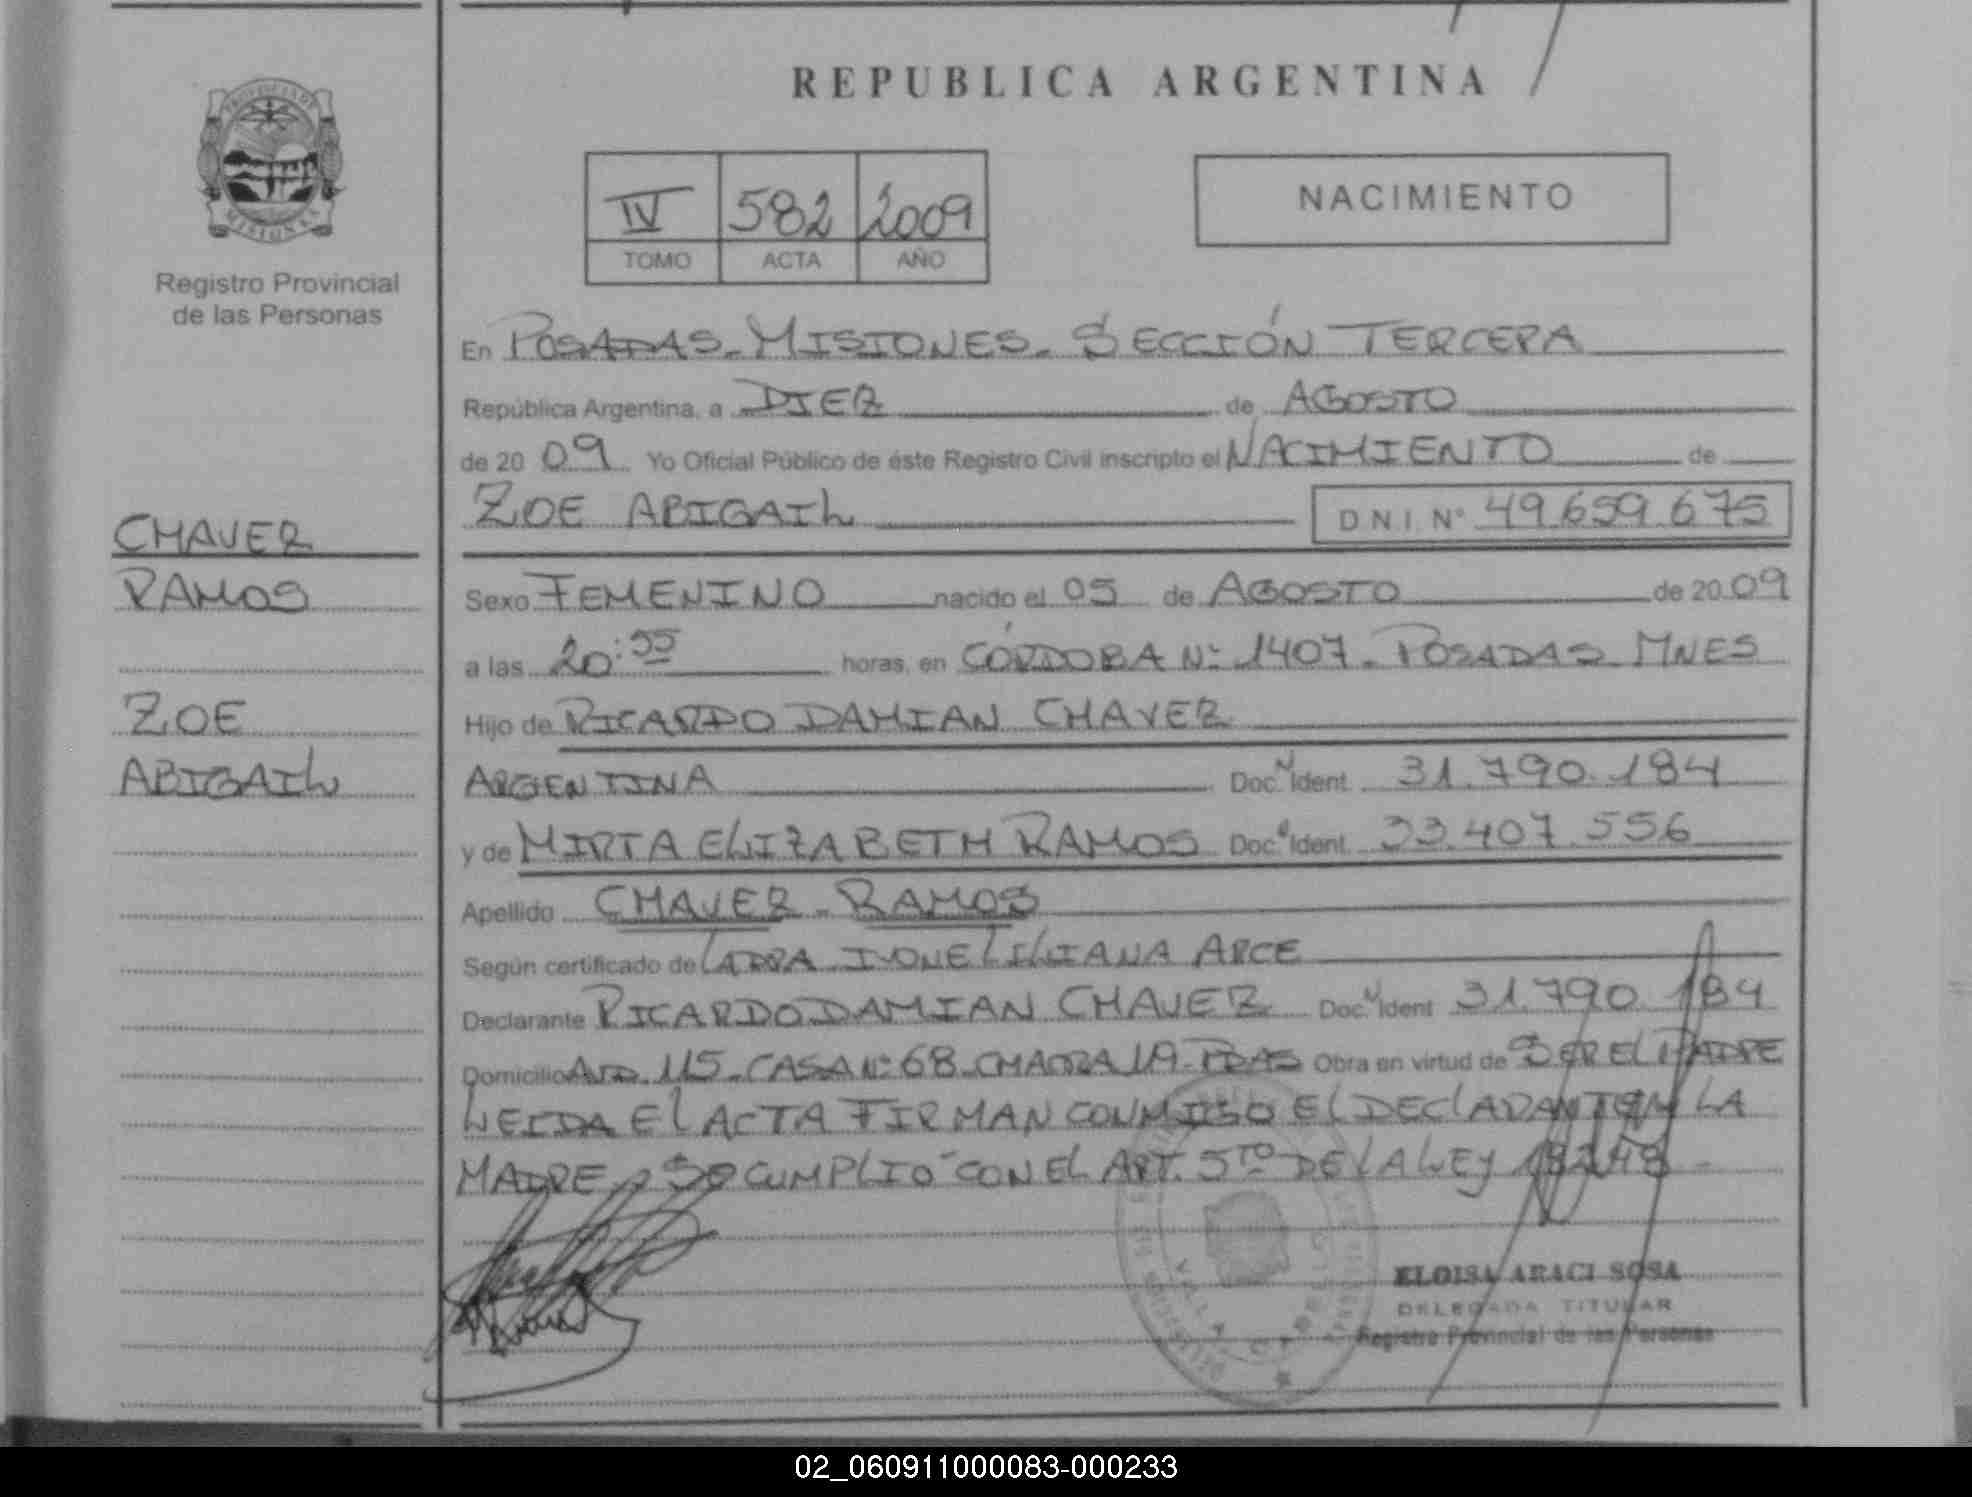 REPUBLICA ARGENTINA
PROVINCIA DE
MISIONES
Registro Provincial
de las Personas
IV 582 2009
TOMO ACTA AÑO
NACIMIENTO
En POSADAS - MISIONES - SECCIÓN TERCERA
República Argentina, a DIEZ de AGOSTO
de 20 09 Yo Oficial Público de éste Registro Civil inscripto el NACIMIENTO de
ZOE ABIGAIL D N I. Nº 49.659.675
CHAVEZ
RAMOS
ZOE
ABIGAIL
Sexo FEMENINO nacido el 05 de AGOSTO de 20 09
a las 20:55 horas, en CÓRDOBA Nº 1407 - POSADAS MNES
Hijo de RICARDO DAMIAN CHAVEZ
ARGENTINA Doc. Ident. 31.790.184
y de MIRTA ELIZABETH RAMOS Doc. Ident. 33.407.556
Apellido CHAVEZ - RAMOS
Según certificado de IVONE LILIANA ARCE
Declarante RICARDO DAMIAN CHAVEZ Doc. Ident 31.790.184
Domicilio AVD. 115 - CASA Nº 68 - CHACRA 19 - PDAS Obra en virtud de SER EL PADRE
LEIDA EL ACTA FIRMAN CONMIGO EL DECLARANTE LA
MADRE, SE CUMPLIÓ CON EL ART. 5TO DE LA LEY 18248 -
ELOISA ARACI SOSA
DELEGADA TITULAR
Registro Provincial de las Personas
02_060911000083-000233